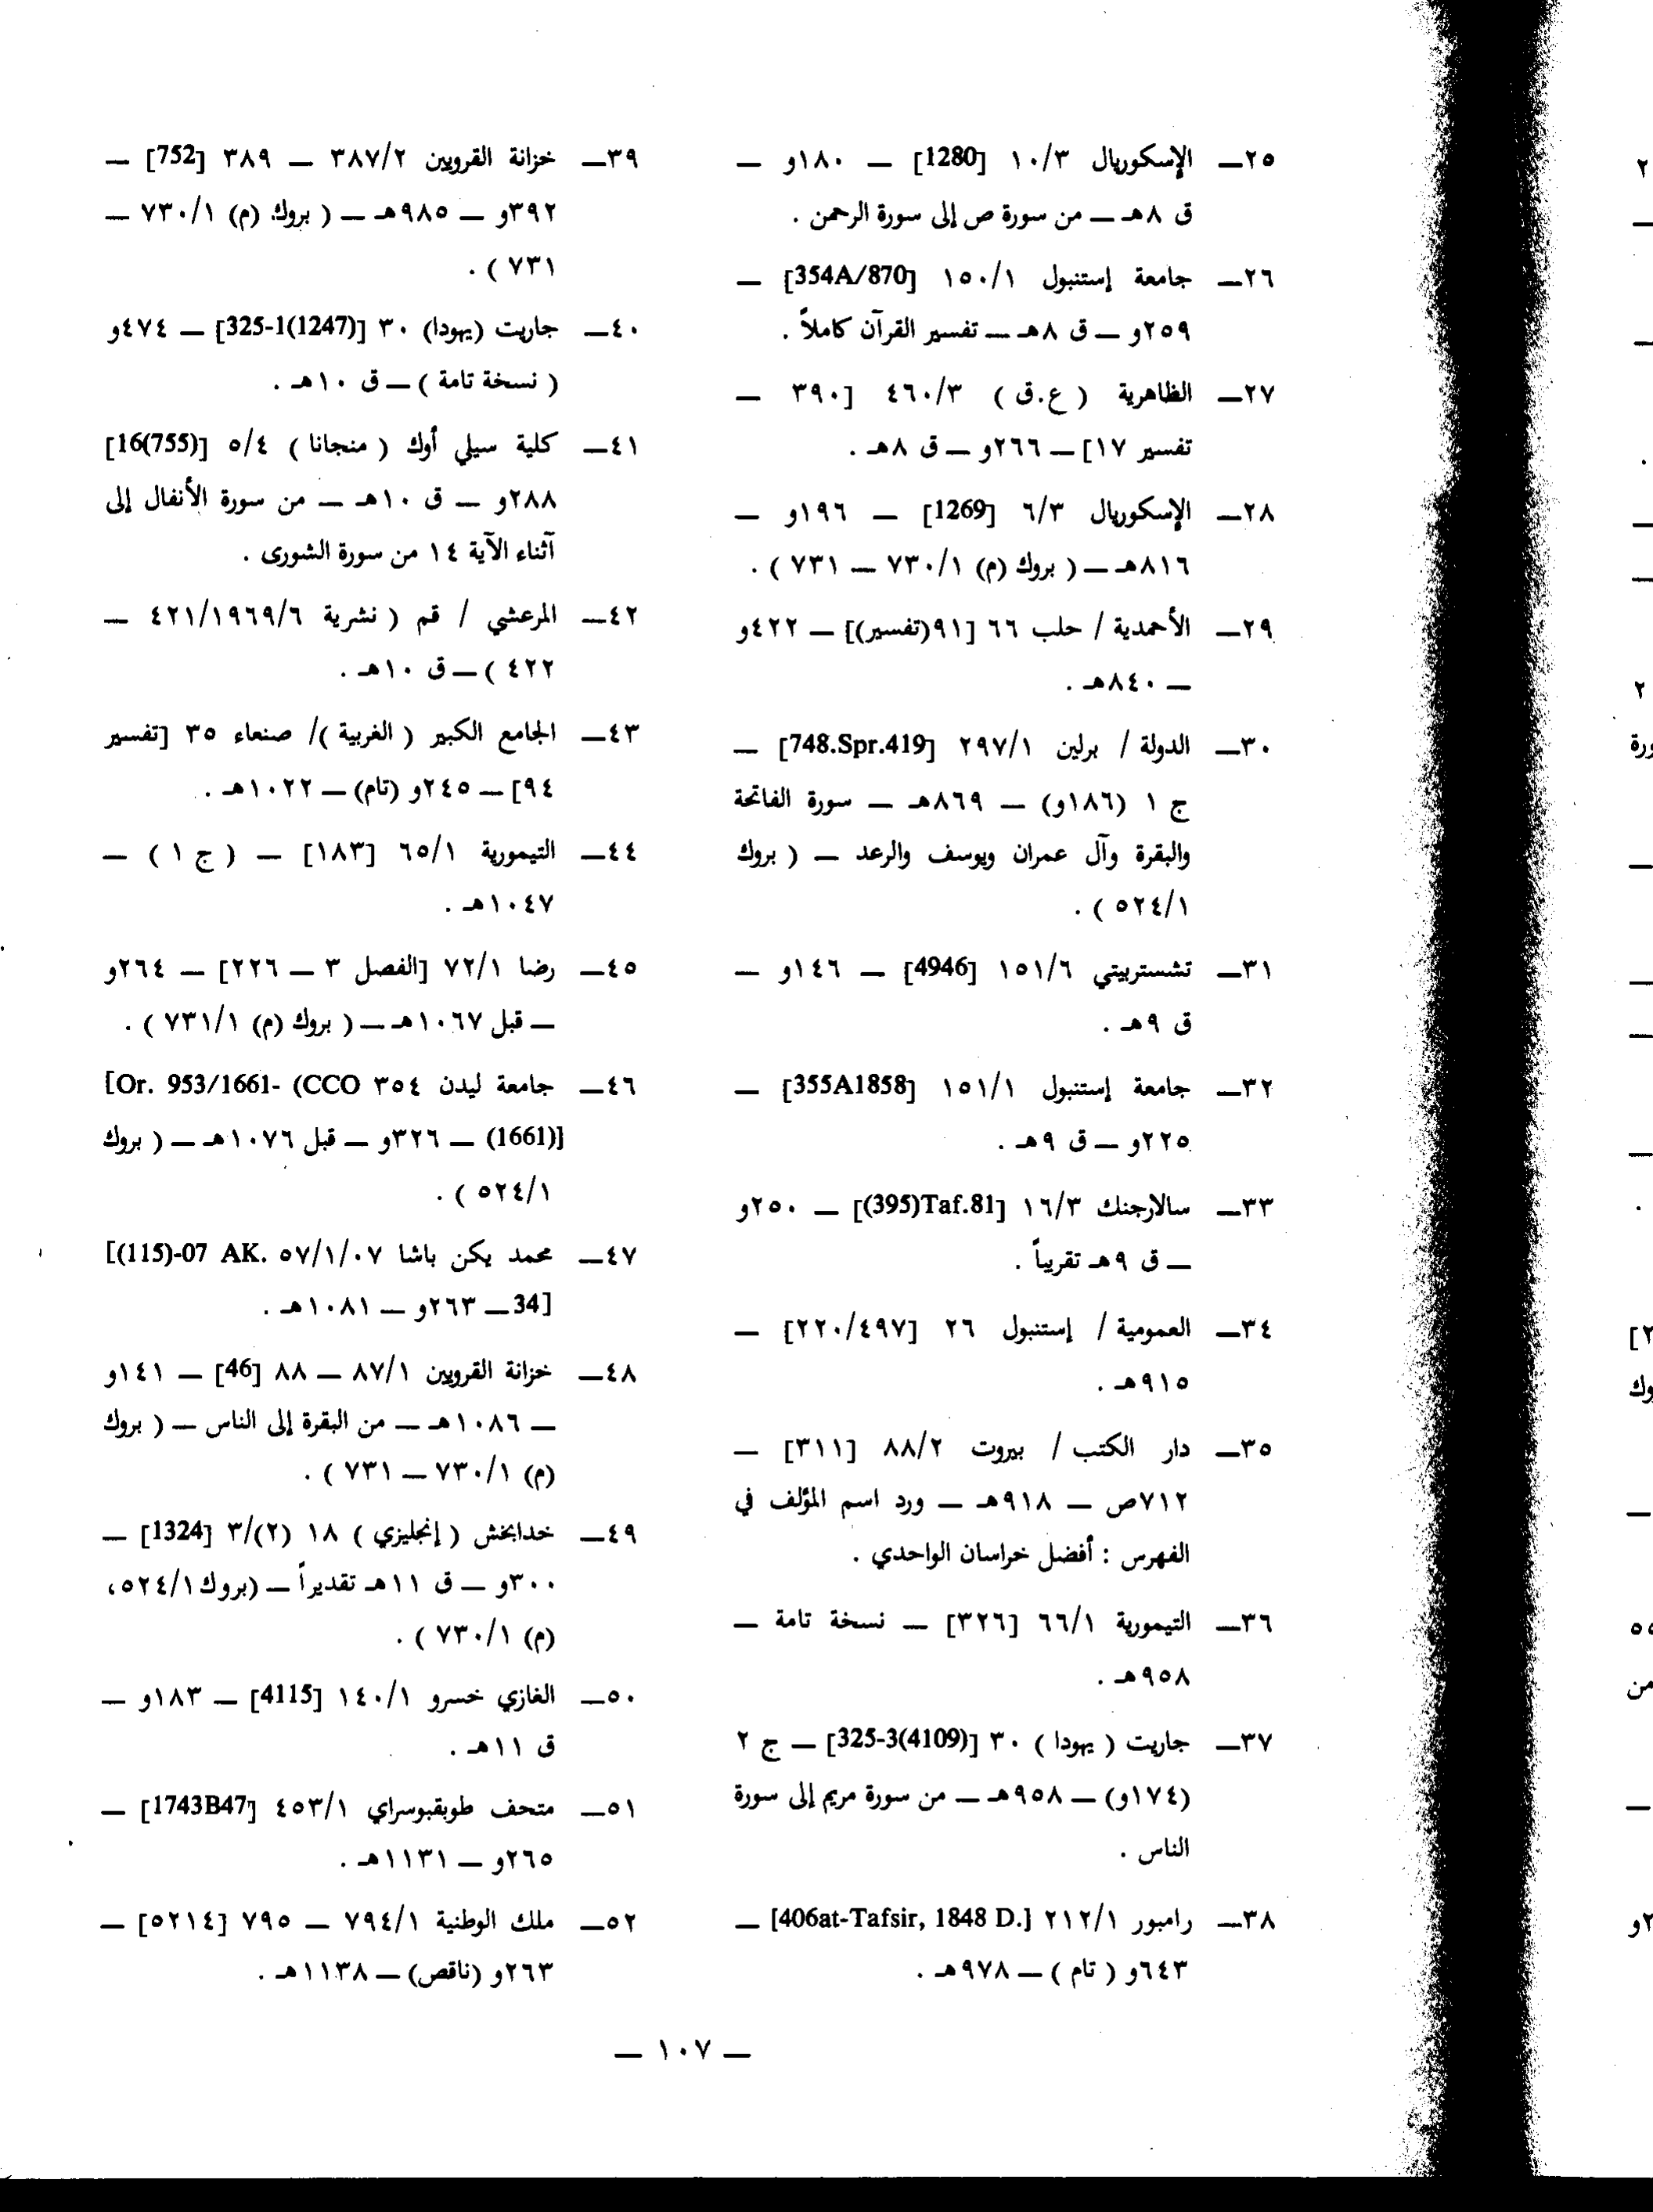 ٢٥— الإسكوريال ١٠/٣ [1280] — ١٨٠و —
ق ٨هـ — من سورة ص إلى سورة الرحمن .
٢٦— جامعة إستنبول ١٥٠/١ [354A/870] —
٢٥٩و — ق ٨هـ — تفسير القرآن كاملاً .
٢٧— الظاهرية ( ع.ق ) ٤٦٠/٣ [٣٩٠ —
تفسير ١٧] — ٢٦٦و — ق ٨هـ .
٢٨— الإسكوريال ٦/٣ [1269] — ١٩٦و —
٨١٦هـ — ( بروك (م) ٧٣٠/١ — ٧٣١ ) .
٢٩— الأحمدية / حلب ٦٦ [٩١(تفسير)] — ٤٢٢و
— ٨٤٠هـ .
٣٠— الدولة / برلين ٢٩٧/١ [748.Spr.419] —
ج ١ (١٨٦و) — ٨٦٩هـ — سورة الفاتحة
والبقرة وآل عمران ويوسف والرعد — ( بروك
٥٢٤/١ ) .
٣١— تشستربيتي ١٥١/٦ [4946] — ١٤٦و —
ق ٩هـ .
٣٢— جامعة إستنبول ١٥١/١ [355A1858] —
٢٢٥و — ق ٩هـ .
٣٣— سالارجنك ١٦/٣ [(395)Taf.81] — ٢٥٠و
— ق ٩هـ تقريباً .
٣٤— العمومية / إستنبول ٢٦ [٢٢٠/٤٩٧] —
٩١٥هـ .
٣٥— دار الكتب / بيروت ٨٨/٢ [٣١١] —
٧١٢ص — ٩١٨هـ — ورد اسم المؤلف في
الفهرس : أفضل خراسان الواحدي .
٣٦— التيمورية ٦٦/١ [٣٢٦] — نسخة تامة —
٩٥٨هـ .
٣٧— جاريت ( يهودا ) ٣٠ [325-3(4109)] — ج ٢
(١٧٤و) — ٩٥٨هـ — من سورة مريم إلى سورة
الناس .
٣٨— رامبور ٢١٢/١ [406at-Tafsir, 1848 D.] —
٦٤٣و ( تام ) — ٩٧٨هـ .
٣٩— خزانة القرويين ٣٨٧/٢ — ٣٨٩ [752] —
٣٩٢و — ٩٨٥هـ — ( بروك (م) ٧٣٠/١ —
٧٣١ ) .
٤٠— جاريت (يهودا) ٣٠ [325-1(1247)] — ٤٧٤و
( نسخة تامة ) — ق ١٠هـ .
٤١— كلية سيلي أوك ( منجانا ) ٥/٤ [16(755)]
٢٨٨و — ق ١٠هـ — من سورة الأنفال إلى
آثناء الآية ١٤ من سورة الشورى .
٤٢— المرعشي / قم ( نشرية ٤٢١/١٩٦٩/٦ —
٤٢٢ ) — ق ١٠هـ .
٤٣— الجامع الكبير ( الغربية )/ صنعاء ٣٥ [تفسير
٩٤] — ٢٤٥و (تام) — ١٠٢٢هـ .
٤٤— التيمورية ٦٥/١ [١٨٣] — ( ج ١ ) —
١٠٤٧هـ .
٤٥— رضا ٧٢/١ [الفصل ٣ — ٢٢٦] — ٢٦٤و
— قبل ١٠٦٧هـ — ( بروك (م) ٧٣١/١ ) .
٤٦— جامعة ليدن ٣٥٤ [Or. 953/1661- (CCO
(1661)] — ٣٢٦و — قبل ١٠٧٦هـ — ( بروك
٥٢٤/١ ) .
٤٧— محمد يكن باشا ٥٧/١/٠٧ [(115)-07 AK.
34] — ٢٦٣و — ١٠٨١هـ .
٤٨— خزانة القرويين ٨٧/١ — ٨٨ [46] — ١٤١و
— ١٠٨٦هـ — من البقرة إلى الناس — ( بروك
(م) ٧٣٠/١ — ٧٣١ ) .
٤٩— خدابخش ( إنجليزي ) ١٨ (٢)/٣ [1324] —
٣٠٠و — ق ١١هـ تقديراً — (بروك ٥٢٤/١،
(م) ٧٣٠/١ ) .
٥٠— الغازي خسرو ١٤٠/١ [4115] — ١٨٣و —
ق ١١هـ .
٥١— متحف طوبقبوسراي ٤٥٣/١ [1743B47] —
٢٦٥و — ١١٣١هـ .
٥٢— ملك الوطنية ٧٩٤/١ — ٧٩٥ [٥٢١٤] —
٢٦٣و (ناقص) — ١١٣٨هـ .
— ١٠٧ —